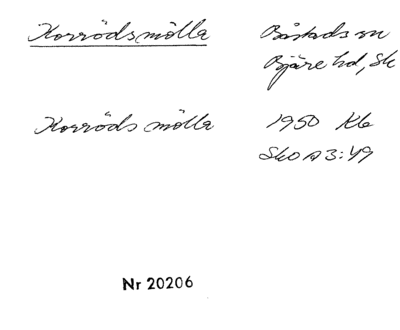 Korrödsmölla
Båstads sn
Bjäre hd, Sk
Korröds mölla
1950 Kb
SkO A3:49
Nr 20206